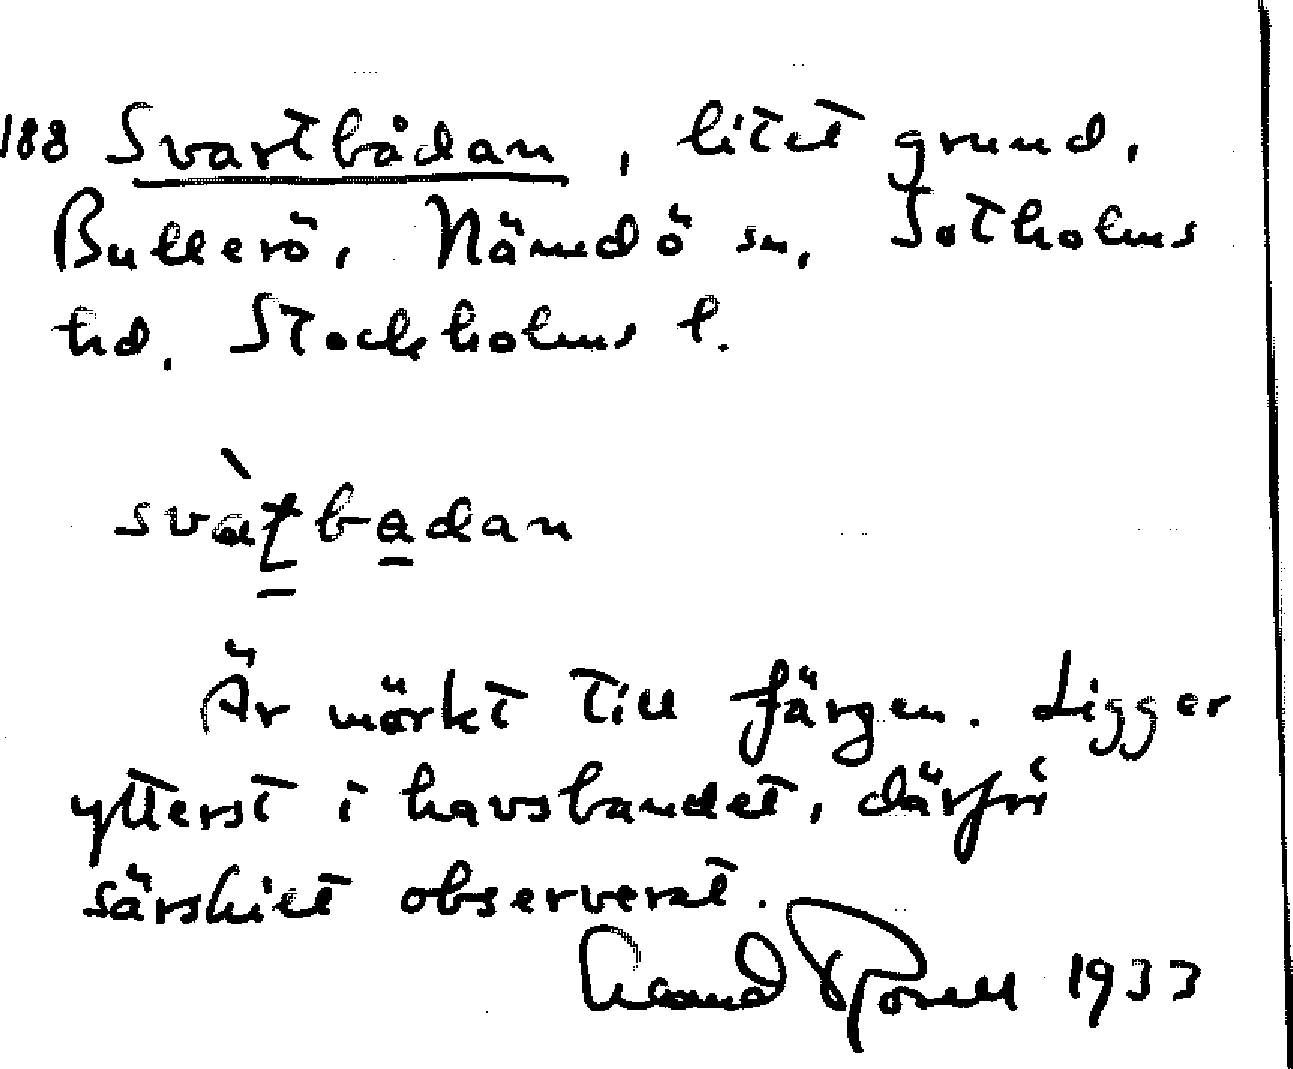 188 Svartbådan, litet grund,
Bullerö, Nämdö sn, Sotholms
hd. Stockholms l.
Är mörkt till färgen. Ligger
ytterst i havsbandet, därför
särskilt observerat.
1933